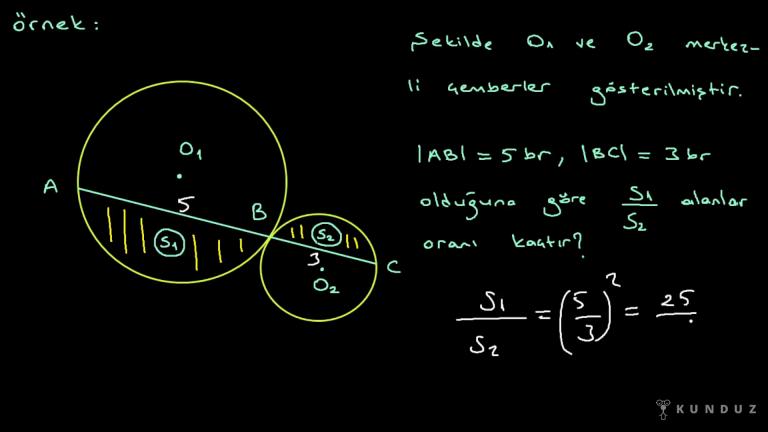 örnek:
Şekilde O1 ve O2 merkez-
li çemberler gösterilmiştir.
|AB| = 5 br, |BC| = 3 br
olduğuna göre S1/S2 alanlar
oranı kaçtır?
O1
A
5
B
S1
S2
3
C
O2
S1/S2 = (5/3)² = 25
KUNDUZ